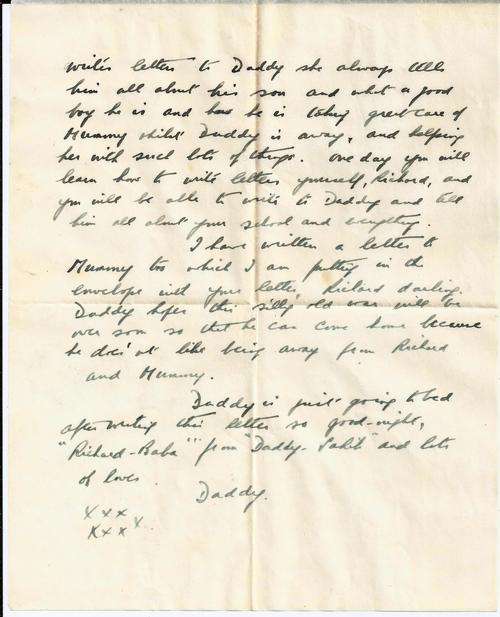 writes letters to Daddy she always tells
him all about his son and what a good
boy he is and how he is taking great care of
Mummy whilst Daddy is away, and helping
her with such lots of things. One day you will
learn how to write letters yourself, Richard, and
you will be able to write to Daddy and tell
him all about your school and everything.
I have written a letter to
Mummy too which I am putting in the
envelope with your letter, Richard darling.
Daddy hopes this silly old war will be
over soon so that he can come home because
he does'nt like being away from Richard
and Mummy.
Daddy is just going to bed
after writing this letter so good-night,
"Richard-Baba" from "Daddy-Sahib" and lots
of love.
Daddy.
x x x
x x x x